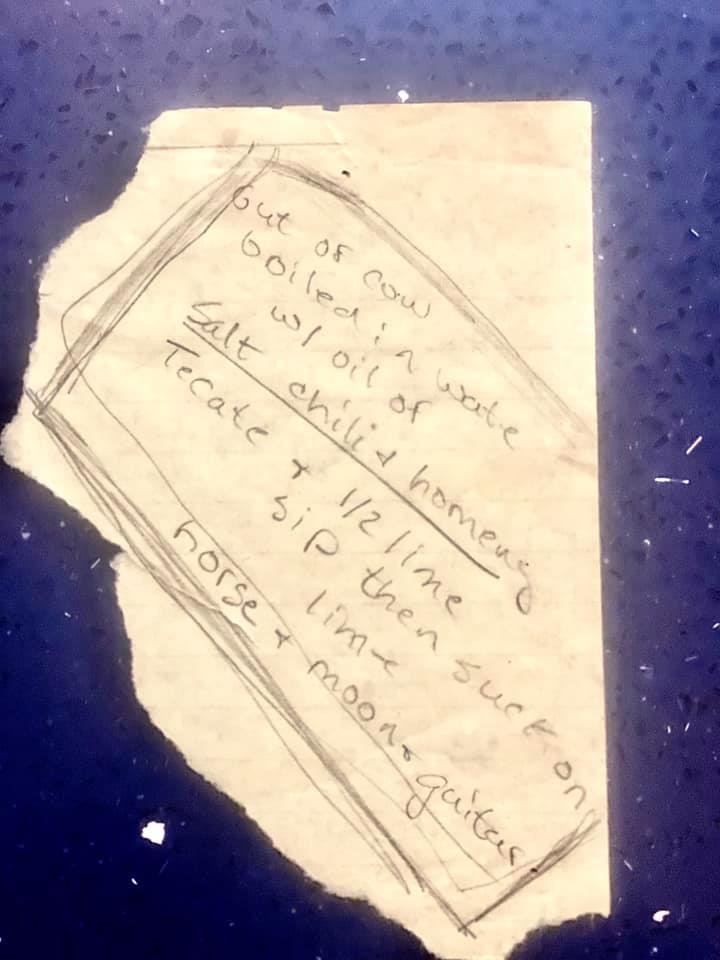 Gut of cow
boiled in wate
w/ oil of
Salt chili & homeny
Tecate + 1/2 lime
sip then suck on
lime
horse + moon + guitar